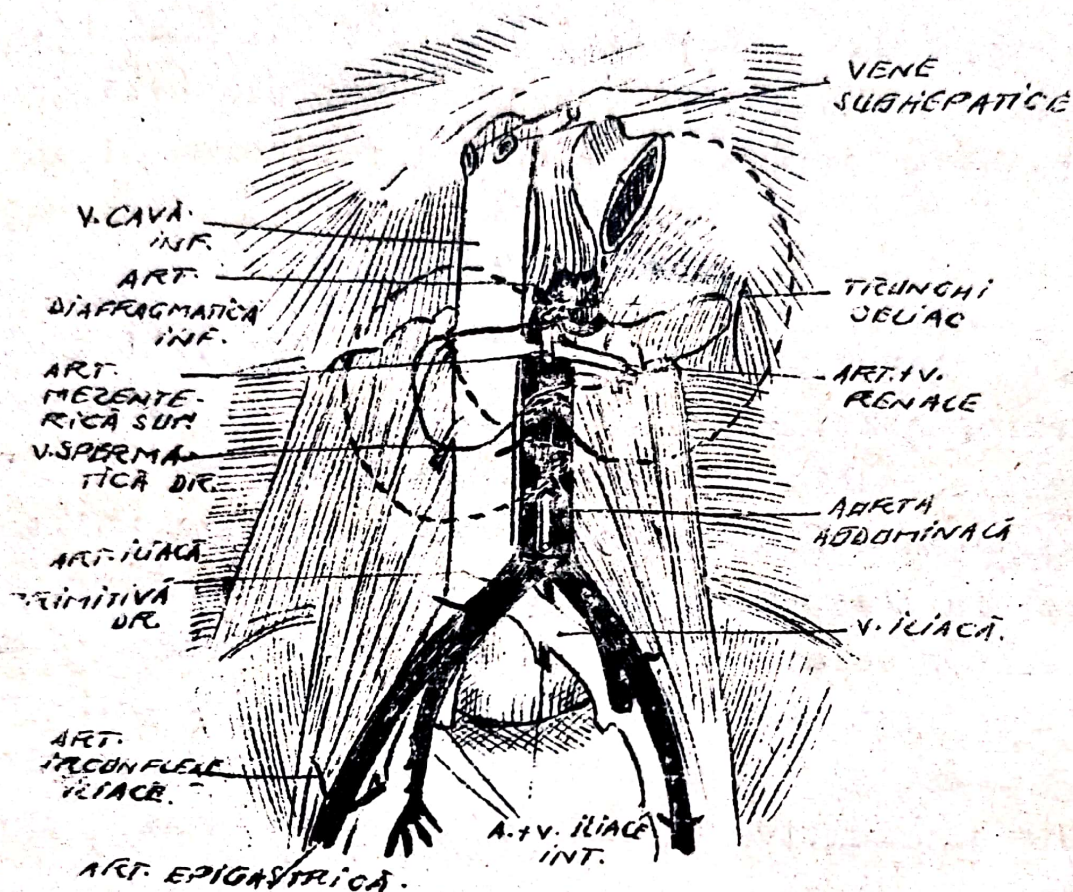 VENE
SUBHEPATICE
V. CAVĂ
INF.
ART.
DIAFRAGMATICĂ
INF.
TRUNCHI
CELIAC
ART.
MEZENTE-
RICĂ SUP.
ART.+V.
RENALE
V. SPERMA
TICĂ DR.
AORTA
ABDOMINALĂ
ART. ILIACĂ
PRIMITIVĂ
DR.
V. ILIACĂ.
ART.
IRCONFLEXE
ILIACE.
A.+V. ILIACE
INT.
ART. EPIGASTRICĂ.